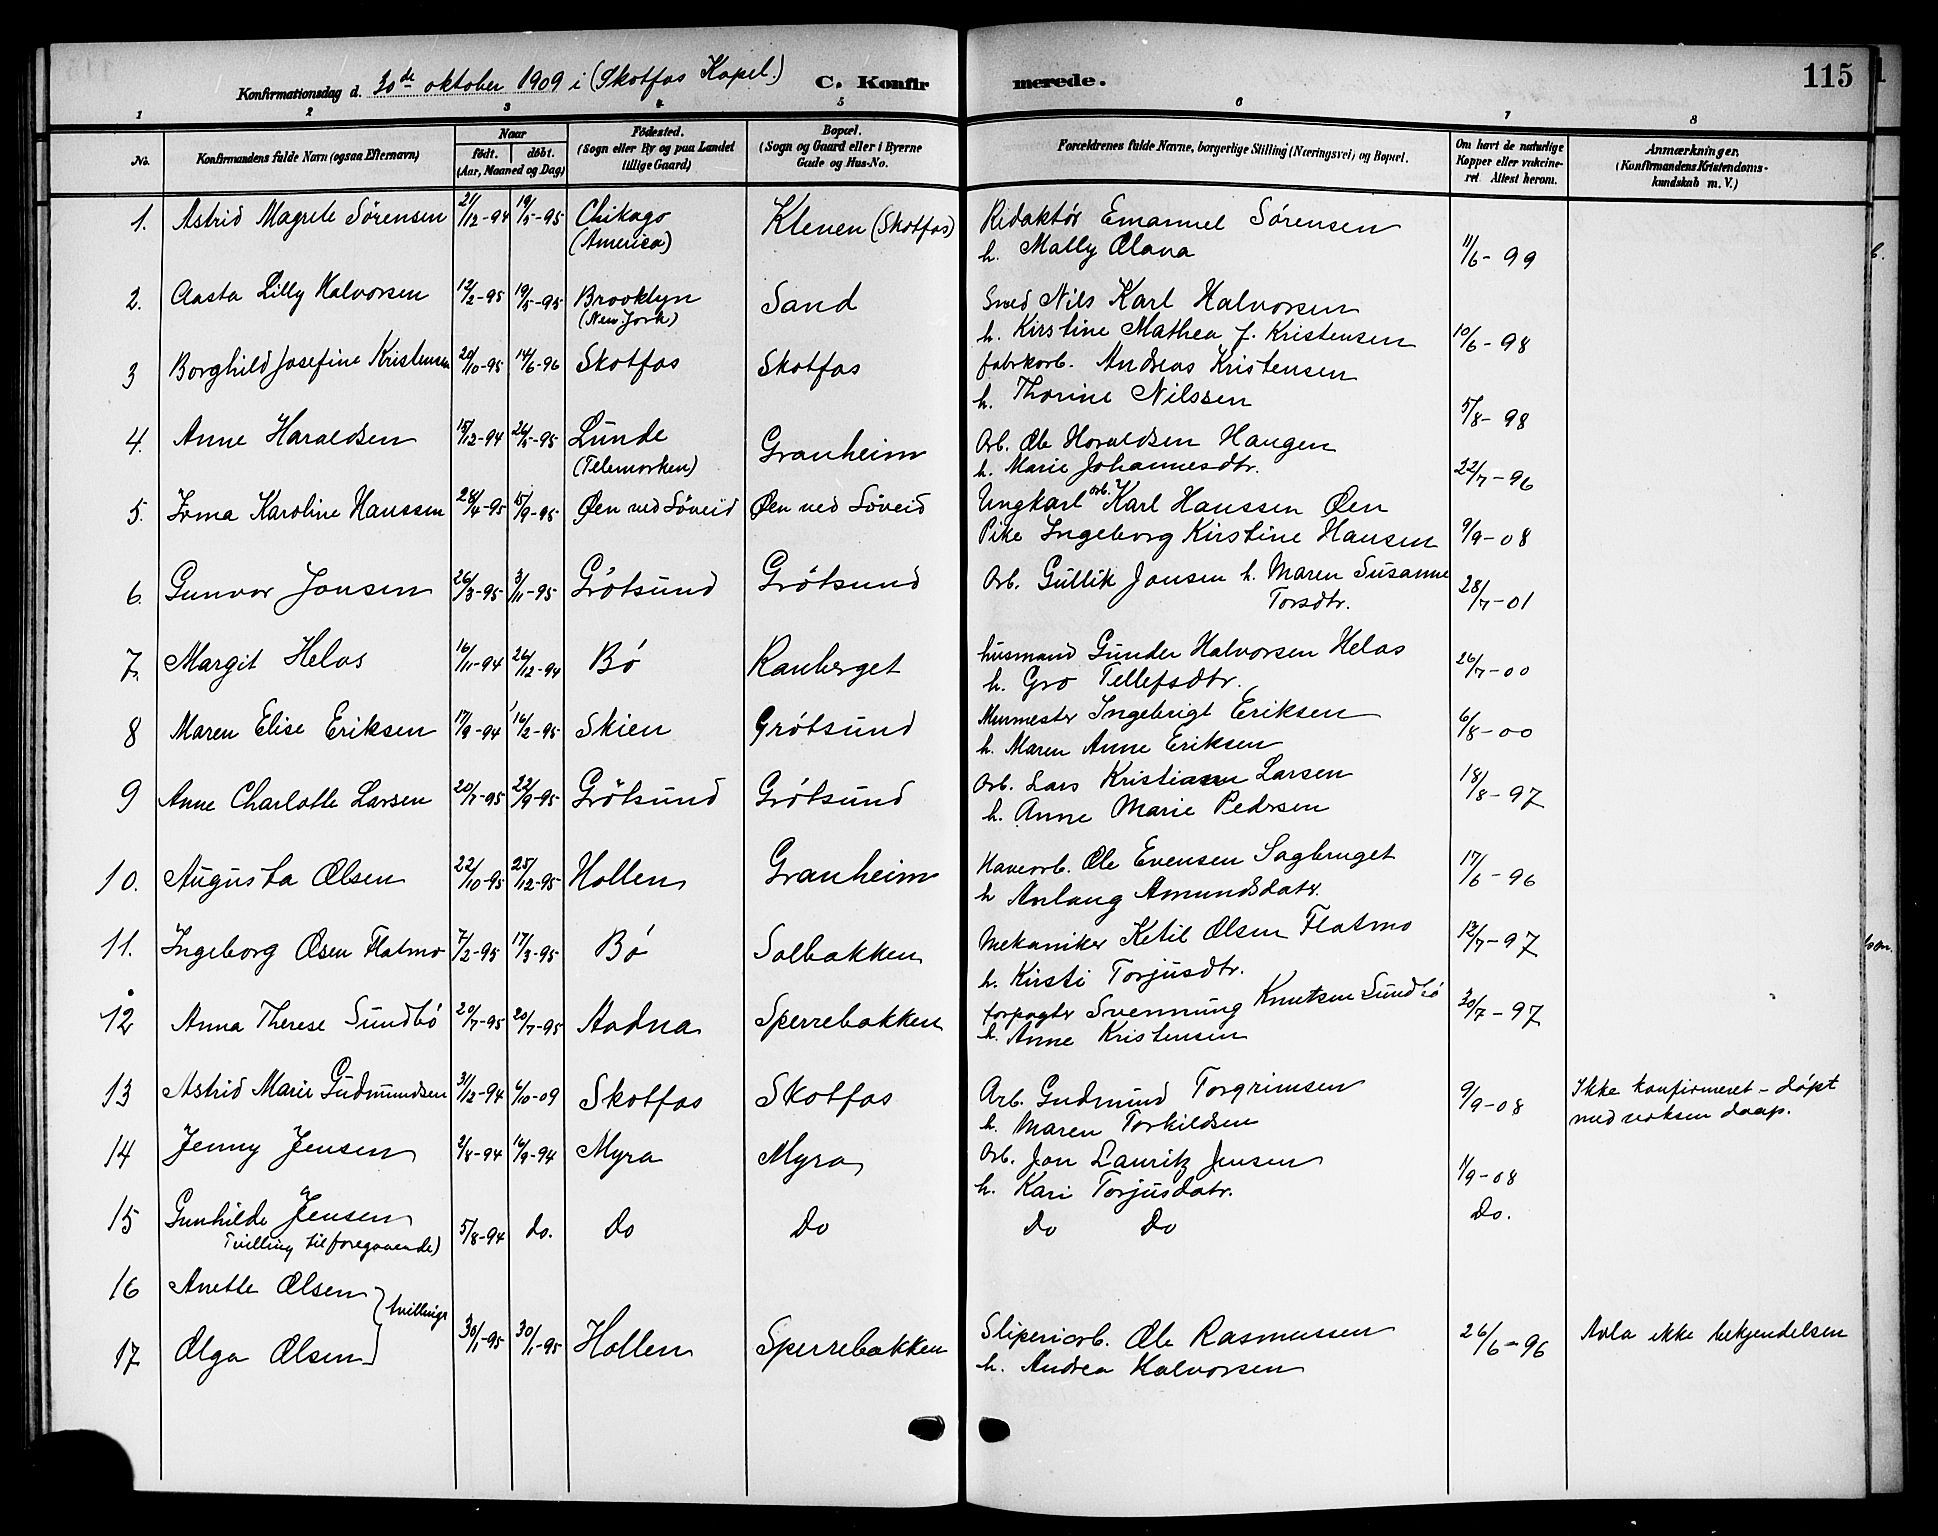 Konfirmationsdag d. 30de oktober 1909 i (Skotfos Kapel.) C. Konfirmerede. 115
1 2 3 4 5 6 7 8
No. Konfirmandens fulde Navn (ogsaa Efternavn) Naar født. døbt. (Aar, Maaned og Dag) Fødested. (Sogn eller By og paa Landet tillige Gaard) Bopæl. (Sogn og Gaard eller i Byerne Gade og Hus-No. Forældrenes fulde Navne, borgerlige Stilling (Næringsvei) og Bopæl. Om havt de naturlige Kopper eller vakcineret. Attest herom. Anmærkninger. (Konfirmandens Kristendomskundskab m. V.)
1. Astrid Magrete Sörensen 21/12-94 19/5-95 Chikago (America) Klenen (Skotfos) Redaktör Emanuel Sörensen
h. Mally Olava 11/6-99
2. Aasta Lilly Halvorsen 12/2-95 19/5-95 Brooklyn (New York) Sand Smed Nils Karl Halvorsen
h. Kirstine Mathea f. Kristensen 10/6-98
3 Borghild Josefine Kristensen 20/10-95 14/6-96 Skotfos Skotfos fabrkarb. Andreas Kristensen
h. Thorine Nilssen 5/8-98
4. Anne Haraldsen 15/12-94 26/5-95 Lunde (Telemarken) Granheim Arb. Ole Haraldsen Haugen
h. Marie Johannesdtr. 22/7-96
5. Irma Karoline Hanssen 28/4-95 15/9-95 Øen ved Löveid Øen ved Löveid Ungkarl arb. Karl Hanssen Øen
Pike Ingeborg Kirstine Hansen 9/9-08
6. Gunvor Jansen 26/3-95 3/11-95 Grötsund Grötsund Arb. Gullik Jansen h. Maren Susanne
Torsdtr. 28/7-01
7. Margit Helas 16/11-94 26/12-94 Bö Ranberget husmand Gunder Halvorsen Helas
h. Gro Tellefsdtr. 26/7-00
8 Maren Elise Eriksen 17/9-94 16/2-95 Skien Grötsund Murmester Ingebrigt Eriksen
h. Maren Anne Eriksen 6/8-00
9 Anne Charlotte Larsen 20/7-95 22/9-95 Grötsund Grötsund Arb. Lars Kristiansen Larsen
h. Anne Marie Pedersen 18/8-97
10. Augusta Olsen 22/10-95 25/12-95 Hollen Granheim Haveorb. Ole Evensen Sagbruget
h Anlaug Amundsdatr. 17/6-96
11. Ingeborg Olsen Flatmo 7/2-95 17/3-95 Bö Solbakken Mekaniker Ketil Olsen Flatmo
h. Kirsti Torjusdtr. 12/7-97
12 Anna Therese Sundbö 20/7-95 20/7-95 Aadna Sperrebakken forpagter Svennung Knutsen Sundbö
h. Anne Kristensen 30/7-97
13 Astrid Marie Gudmundsen 31/12-94 6/10-09 Skotfos Skotfos Arb. Gudmund Torgrimsen
h. Maren Torkildsen 9/9-08 Ikke konfirmeret – döpt
med voksen daap.
14 Jenny Jensen 2/8-94 16/9-94 Myra Myra Arb. Jan Lauritz Jensen
h. Kari Torjusdatr. 1/9-08
15 Gunhilde Jensen 5/8-94 do. Do Do Do Do Do.
Tvilling til foregaaende)
16 Anette Olsen
tvillinger
17 Olga Olsen 30/1-95 30/1-95 Hollen Sperrebakken Sliperiarb. Ole Rasmussen
h. Andrea Halvorsen 26/6-96 Avla ikke bekjendelsen